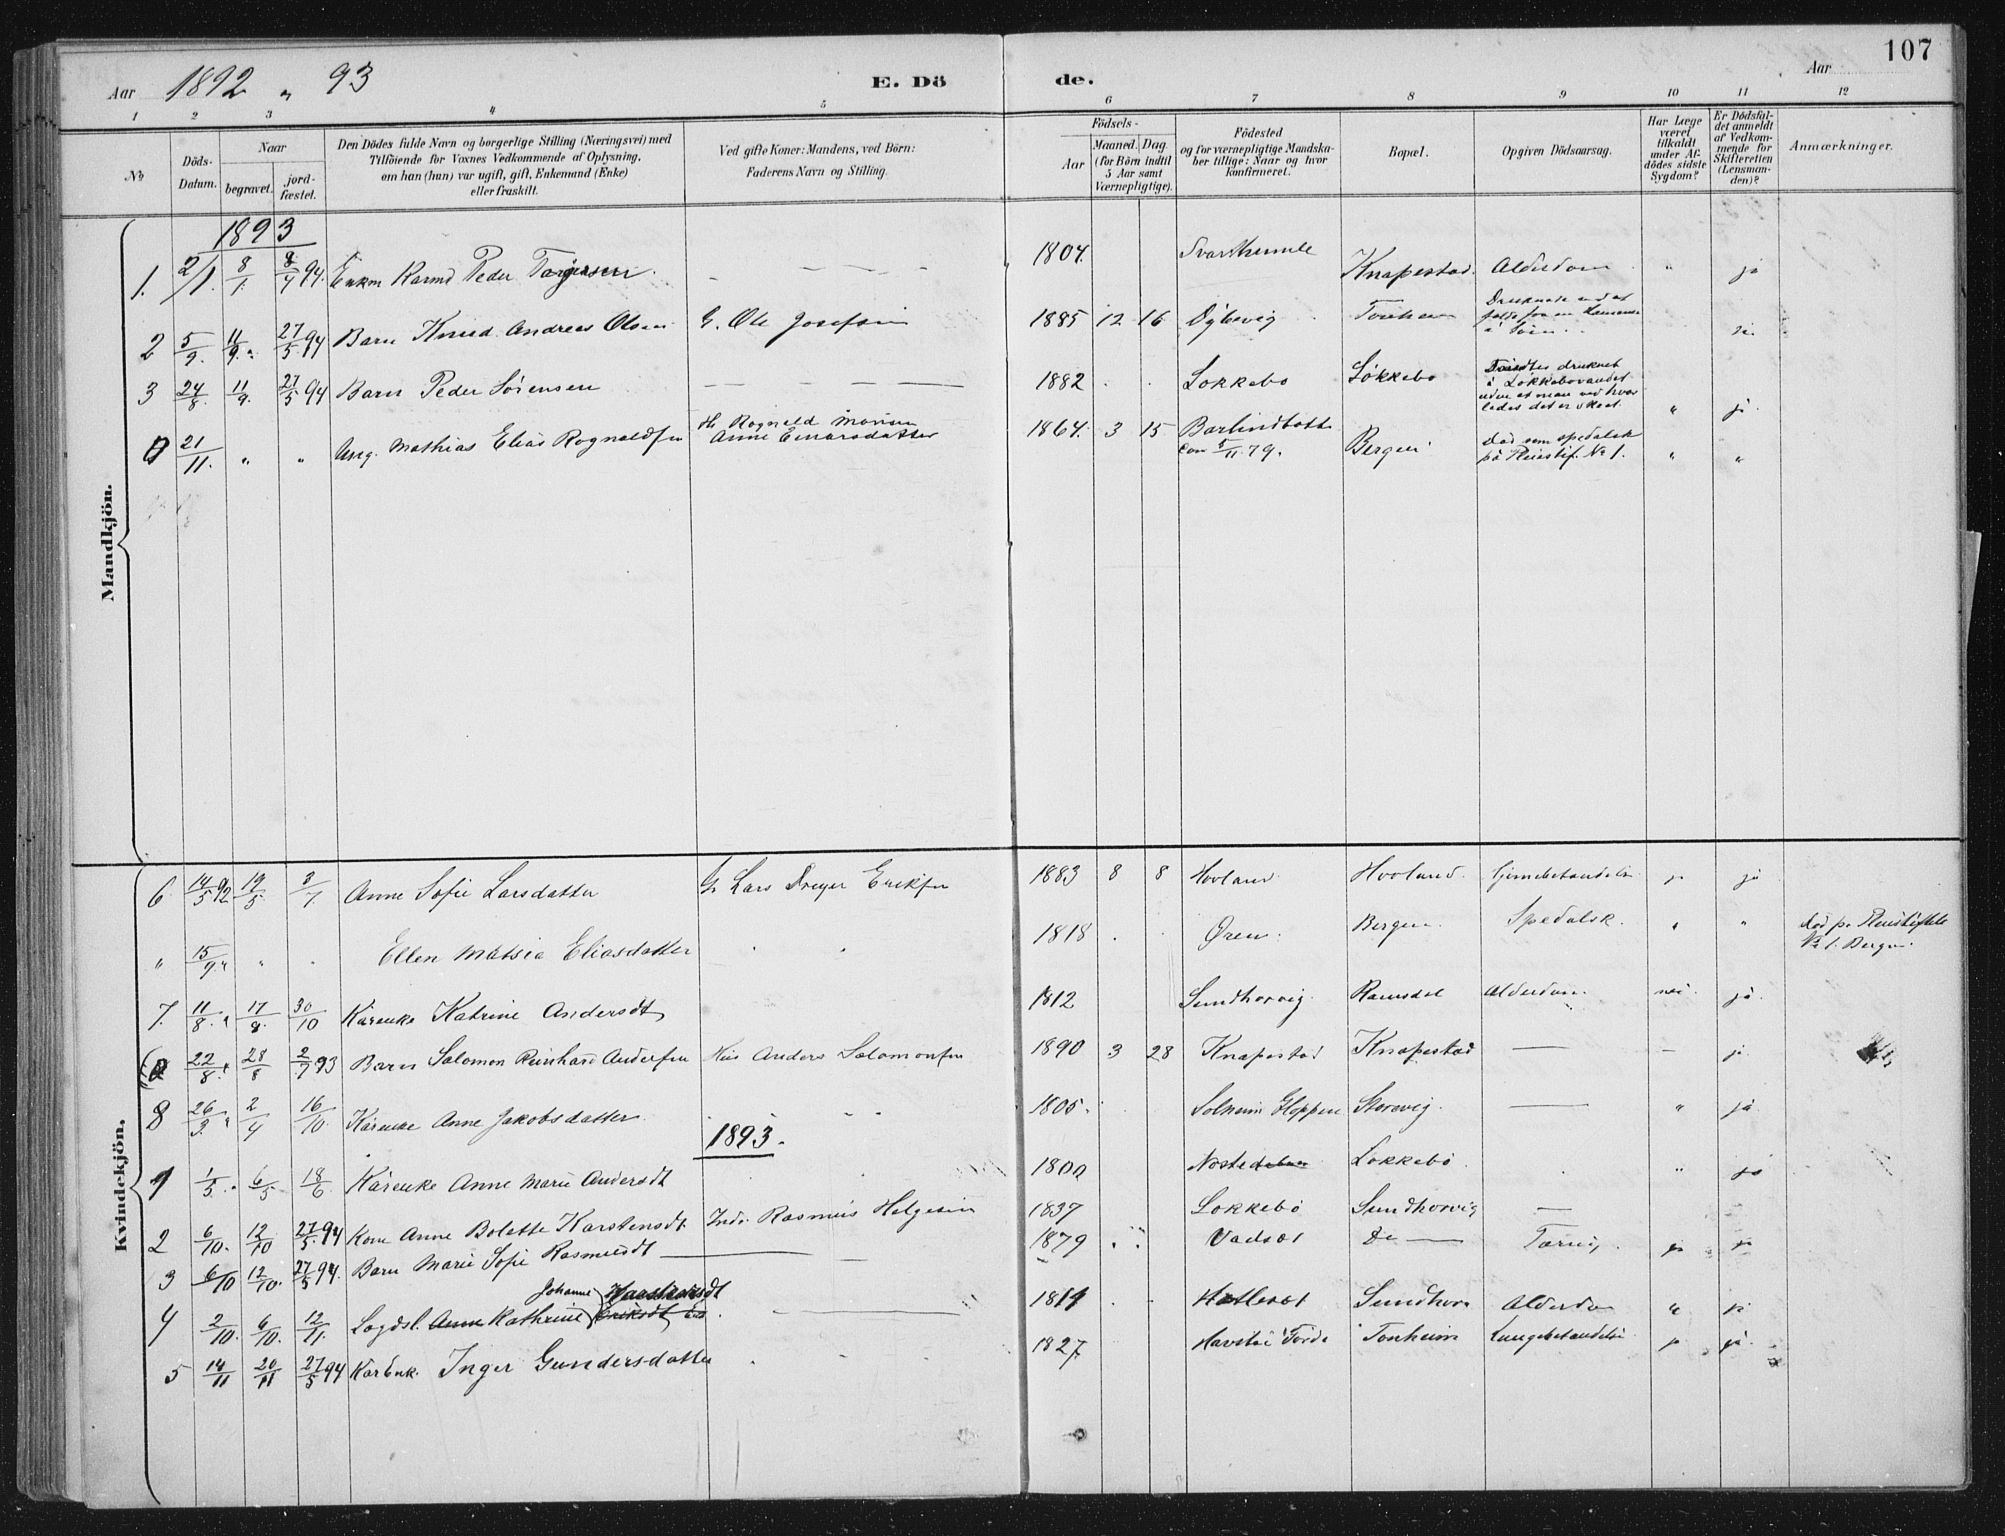 107
Aar 1892 " 93 E. Dö de. Aar
1 2 3 4 5 6 7 8 9 10 11 12
No
Döds-
Datum.
Naar
begravet.
jord-
fæstet.
Den Dödes fulde Navn og borgerlige Stilling (Næringsvei) med
Tilföiende for Voxnes Vedkommende af Oplysning,
om han (hun) var ugift, gift, Enkemand (Enke)
eller fraskilt.
Ved gifte Koner: Mandens, ved Börn:
Faderens Navn og Stilling.
Födsels-
Aar
Maaned. Dag
(for Börn indtil
5 Aar samt
Værnepligtige).
Födested
og for værnepligtige Mandska-
ber tillige: Naar og hvor
konfirmeret.
Bopæl.
Opgiven Dödsaarsag.
Har Læge
været
tilkaldt
under Af-
dödes sidste
Sygdom?
Er Dödsfal-
det anmeldt
af Vedkom-
mende for
Skifteretten
(Lensman-
den)?
Anmærkninger.
Mandkjön.
1893
1. 2/1. 8/1. 94. Enkm Peder 1804. Knapestad. Alderdom " ja
2 5/9. 11/9. " 27/5 94 Barn Knud Andreas Olsen G. Ole Josefsen 1885 12 16 Dybevig
3 24/8. 11/9. 27/5 94 Barn Peder Sörensen — — — 1882 . . Lökkebö Lökkebö druknet
i Lökkebövandet
uden at man ved hvor
ledes det er skeet. " ja
21/11. " " Ung. Mathias Elias Rognaldsen Rognald
Anne Einarsdatter 1864. 3 15
con 5/11 79. Bergen Död som spedalsk
på Pleiestif. No 1. " "
Kvindekjön.
6 14/5 92 19/5 3/7 Anne Sofie Larsdatter G. Lars Dreyer Eriksen 1883 8 8 Hovland Hovland. ja
" 15/9 " " . Ellen Matsia Eliasdatter 1818 . . Ören. Bergen. Spedalsk. " " död på Pleiestiftels
No 1. Bergen.
7. 11/8. " 17/8. 30/10 Kårenke Katrine Andersdt 1812 Sundhorvig. Ramsdal Alderdom nei. ja.
22/8. " 28/8 2/7 93 Barn Salomon Reinhard Andersen Anders Salomonsen 1890 3 28 Knapestad Knapestad — — ja
8 26/3. " 2/4 16/10 Kårenke Anne Jakobsdatter 1805. Solheim Hoppen Storevig. — " ja
1893.
1 1/5. " 6/5 18/6 Kårenke Anne Marie Andersdt 1800 Lökkebö . " ja
2 6/10. 12/10 27/5 94 Kone Anne Bolette Karstensdt. Inds. Rasmus Helgesen 1837 Lökkebö Sundhorvig —
3 6/10 12/10. 27/5 94. Barn Marie Sofie Rasmusdt — 1879 Vadset Do — ja
Johanne
4 2/10. 6/10. 12/11. Lægdsl. Anne Kathrine Eriksdt — Alderdom
5 14/11 20/11 27/5 94 Inger Gundersdatter 1827. Tonheim Lungebetændelse ja ja.